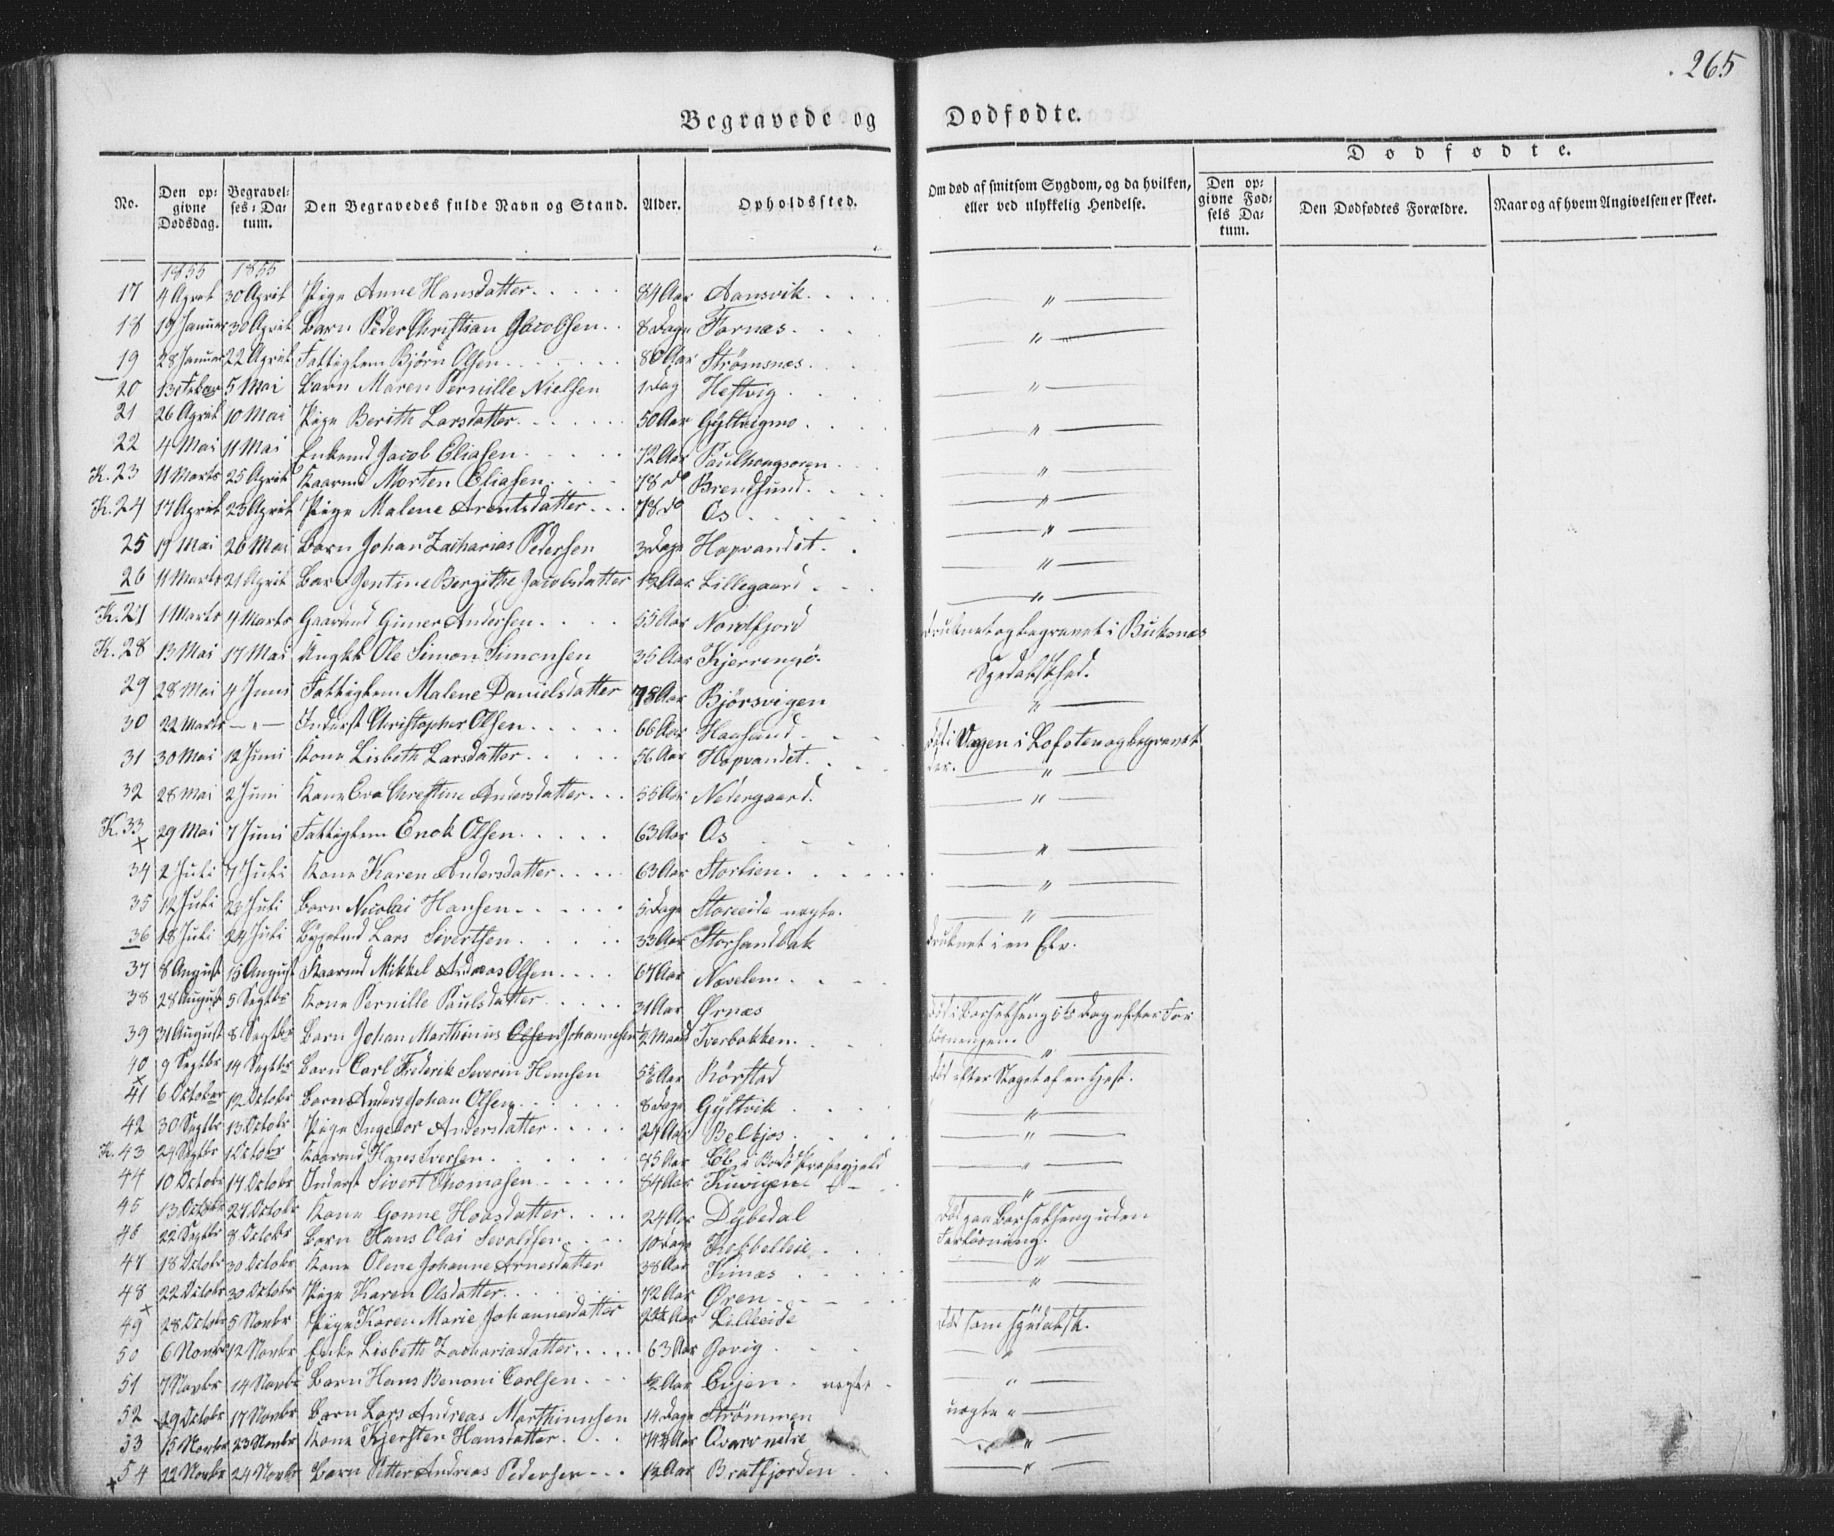 265
Begravede og Dødfødte.
Dødfødte.
No.
Den opgivne Dødsdag.
Begravelses-Datum.
Den Begravedes fulde Navn og Stand.
Alder.
Opholdssted.
Om død af smitsom Sygdom, og da hvilken, eller ved ulykkelig Hendelse.
Den opgivne Fødsels Datum.
Den Dødfødtes Forældre.
Naar og af hvem Angivelsen er skeet.
1855 1855
17 4 April 30 April Pige Anne Hansdatter 84 Aar Aansvik "
18 19 Januar 30 April Barn Peder Christian Jacobsen 8 Dage Fornæs "
19 28 Januar 22 April Fattiglem Bjørn Olsen 80 Aar Strømsnæs
20 5 Mai Barn Maren Pernille Nielsen 1 Dag Hestvig "
21 26 April 10 Mai Pige Berith Larsdatter 50 Aar Gyltvigmo "
22 4 Mai 11 Mai Enkemd Jacob Eliasen 72 Aar
K. 23 11 Marts 25 April Kaarmd Morten Eliasen 78 do Brendsund "
K. 24 17 April 23 April Pige Malene Arentsdatter 78 do Os "
25 19 Mai 26 Mai Barn Johan Zacharias Pedersen 3 Dage Hopvandet "
26 11 Marts 21 April Barn Jentine Bergithe Jacobsdatter 1/2 Aar Lillegaard "
K. 27 1 Marts 4 Marts Gaarmd Gimer Andersen 55 Aar Nordfjord druknet og begravet i Buksnæs
K. 28 13 Mai 17 Mai Ungkl Ole Simon Simonsen 35 Aar Kjerringø Spedalskhed.
29 28 Mai 4 Juni Fattiglem Malene Danielsdatter 78 Aar Bjørsvigen "
30 22 Marts Inderst Christopher Olsen 66 Aar Haasand død i Vagen i Lofoten og begravet der.
31 30 Mai 12 Juni Kone Lisbeth Larsdatter 56 Aar Hopvandet "
32 28 Mai 2 Juni Kone Eva Christine Andersdatter 55 Aar Nedergaard "
K. 33 29 Mai 7 Juni Fattiglem Enok Olsen 63 Aar Os "
34 2 Juli 7 Juli Kone Karen Andersdatter 63 Aar Storlien "
35 12 Juli Juli Barn Nicolai Hansen Dage Storeeide uegte "
36 18 Juli 24 Juli Lars Sivertsen 33 Aar Storsandbak druknet i en Elv.
37 8 August 15 August Kaarmd Mikkel Andreas Olsen 67 Aar Nævelem "
38 28 August 5 Septbr Kone Pernille Paulsdatter 31 Aar Ørnæs død i Barselseng Dag efter Forløsningen.
39 31 August 8 Septbr Barn Johan Marthinius Olsen Johannesen 1/2 Maaned Tverbakken "
40 9 Septbr 14 Septbr Barn Carl Frederik Severin Hansen Aar Rørstad død efter Slaget af en Hest.
41 6 October 12 Octobr Barn Anders Johan Olsen 8 Dage Gyltvik "
42 30 Septbr 13 Octobr Pige Ingebor Andersdatter 24 Aar "
K. 43 24 Septbr 1 Octobr Kaarmd Hans Iversen 85 Aar i Bodø Præstegjeld "
44 10 Octobr 14 Octobr Inderst Sivert Thomasen 84 Aar Kuvigen "
45 13 Octobr Octobr Kone Gonne Hansdatter 24 Aar Dybedal død paa Barselseng uden Forløsning.
46 22 Septbr 8 Octobr Barn Hans Olai Sevaldsen 10 Dage Kobbelleie "
47 18 Octobr 30 Octobr Kone Olene Johanne Arnesdatter 38 Aar Kinæs "
48 22 Octobr 30 Octobr Pige Karen Olsdatter 72 Aar Øren "
49 28 Octobr 5 Novbr Pige Karen Marie Johannesdatter Aar Lilleeide død som spedalsk.
50 6 Novbr 12 Novbr Enke Lisbeth Zachariasdatter 63 Aar Govig "
51 7 Novbr 14 Novbr Barn Hans Benoni Carlsen 1/2 Aar Evjen uegte "
52 29 Octobr 17 Novbr Barn Lars Andreas Marthinusen 14 Dage Strømmen uegte "
53 15 Novbr 23 Novbr Kone Kjersten Hansdatter 74 Aar Qvarv nedre "
54 22 Novbr 24 Novbr Barn Petter Andreas Pedersen 1/2 Aar Bratfjorden "